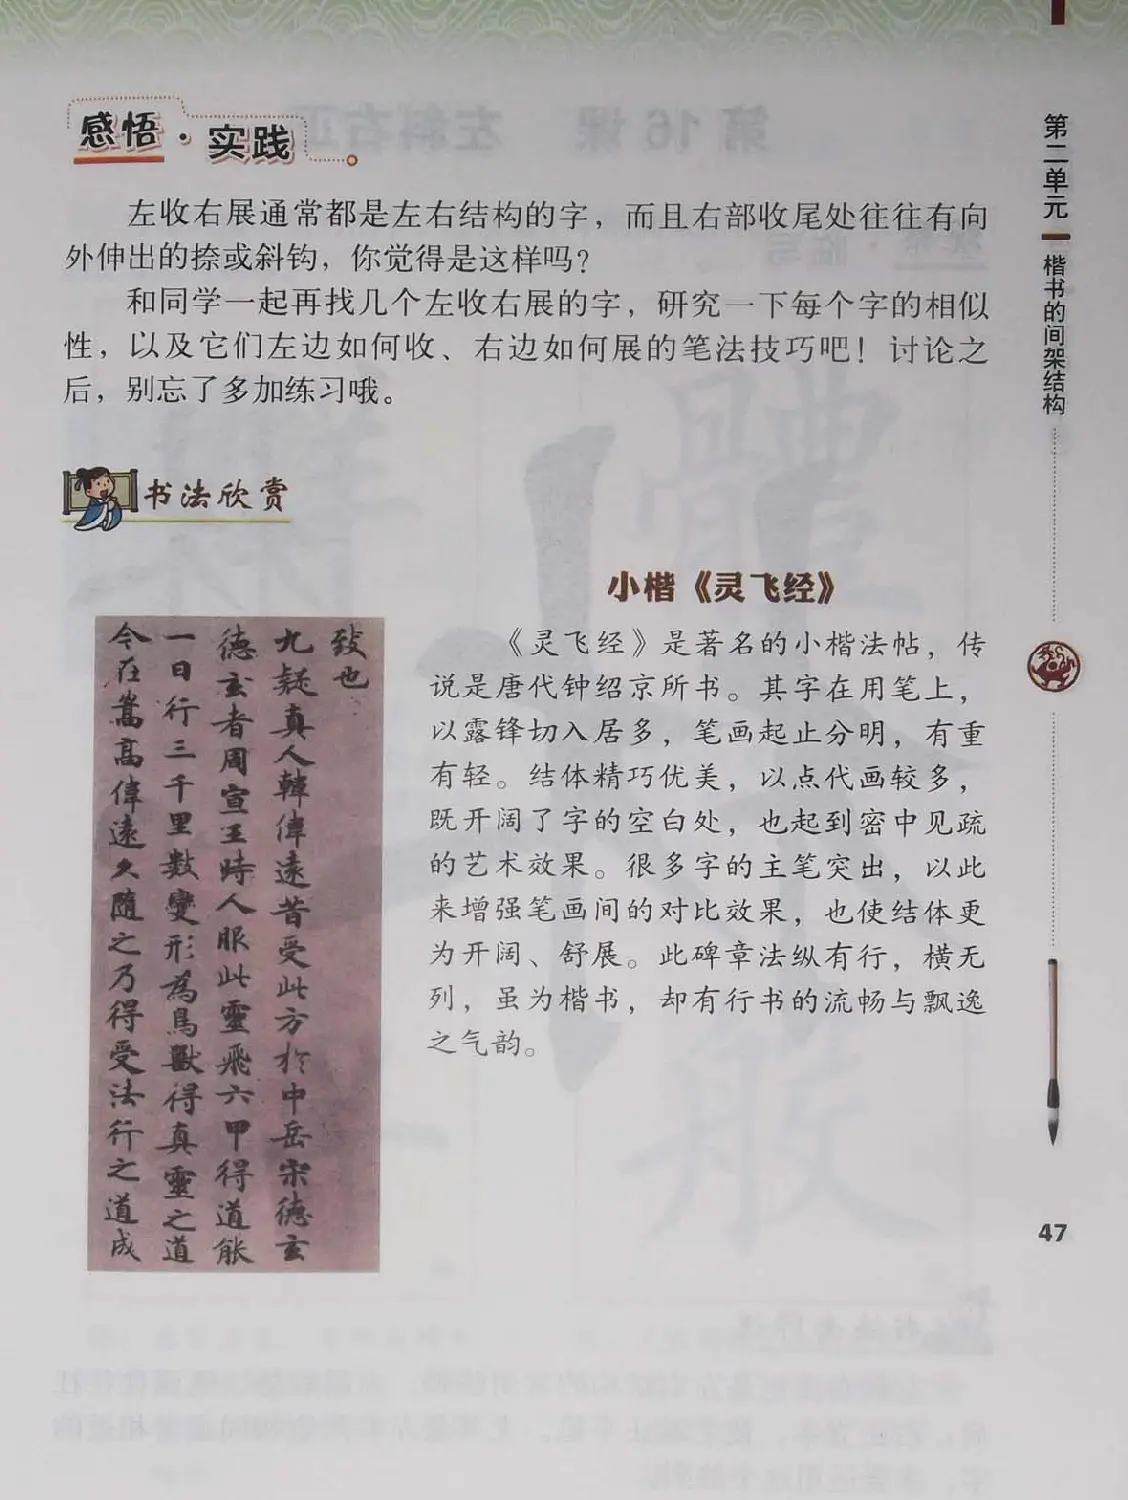 感悟·实践
左收右展通常都是左右结构的字，而且右部收尾处往往有向
外伸出的捺或斜钩，你觉得是这样吗？
和同学一起再找几个左收右展的字，研究一下每个字的相似
性，以及它们左边如何收、右边如何展的笔法技巧吧！讨论之
后，别忘了多加练习哦。
书法欣赏
小楷《灵飞经》
《灵飞经》是著名的小楷法帖，传
说是唐代钟绍京所书。其字在用笔上，
以露锋切入居多，笔画起止分明，有重
有轻。结体精巧优美，以点代画较多，
既开阔了字的空白处，也起到密中见疏
的艺术效果。很多字的主笔突出，以此
来增强笔画间的对比效果，也使结体更
为开阔、舒展。此碑章法纵有行，横无
列，虽为楷书，却有行书的流畅与飘逸
之气韵。
致也
九疑真人韓偉遠昔受此方於中岳宋德玄
德玄者周宣王時人服此靈飛六甲得道能
一日行三千里數變形為鳥獸得真靈之道
今在嵩高偉遠久隨之乃得受法行之道成
第二单元
楷书的间架结构
47